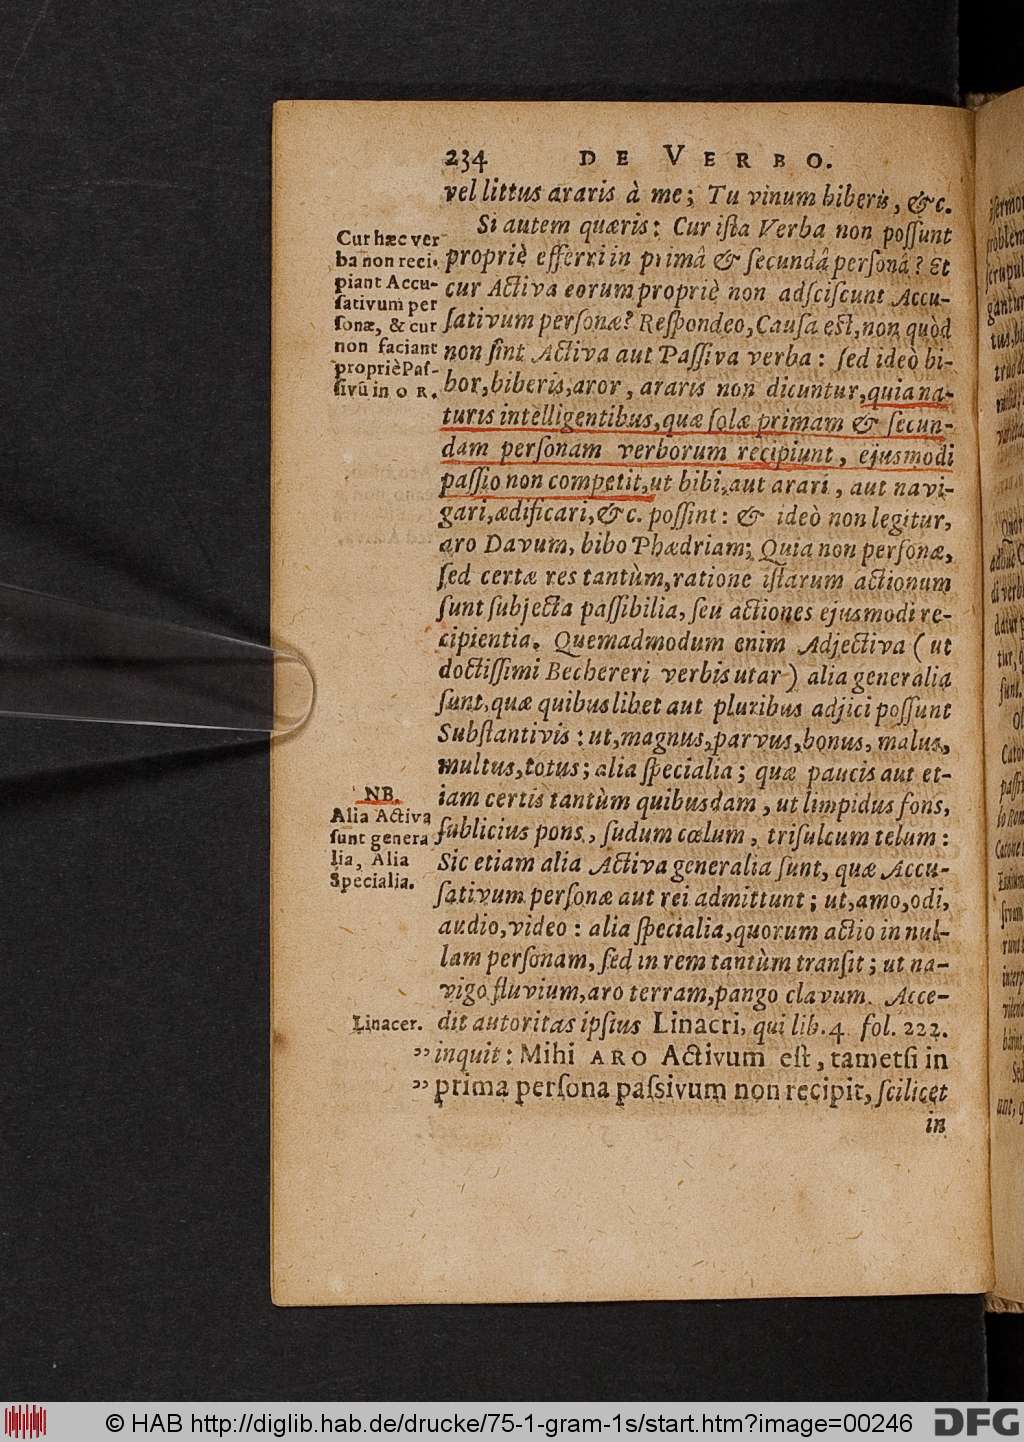 234 DE VERBO.
vel littus araris à me; Tu vinum biberis, &c.
Si autem quæris: Cur iſta Verba non poſſunt
propriè efferri in primâ & ſecundâ perſonâ? Et
cur Activa eorum propriè non adſciſcunt Accu-
ſativum perſonæ? Reſpondeo, Cauſa eſt, non quòd
non ſint Activa aut Paſſiva verba: ſed ideò bi-
bor, biberis, aror, araris non dicuntur, quia na-
turis intelligentibus, quæ ſolæ primam & ſecun-
dam perſonam verborum recipiunt, ejusmodi
paſſio non competit, ut bibi, aut arari, aut navi-
gari, ædificari, &c. poſſint: & ideò non legitur,
aro Davum, bibo Phædriam; Quia non perſonæ,
ſed certæ res tantùm, ratione iſtarum actionum
ſunt ſubjecta paſſibilia, ſeu actiones ejusmodi re-
cipientia. Quemadmodum enim Adjectiva (ut
doctiſſimi Bechereri verbis utar) alia generalia
ſunt, quæ quibuslibet aut pluribus adjici poſſunt
Subſtantivis: ut, magnus, parvus, bonus, malus,
multus, totus; alia ſpecialia; quæ paucis aut et-
iam certis tantùm quibusdam, ut limpidus fons,
ſublicius pons, ſudum cœlum, triſulcum telum:
Sic etiam alia Activa generalia ſunt, quæ Accu-
ſativum perſonæ aut rei admittunt; ut, amo, odi,
audio, video: alia ſpecialia, quorum actio in nul-
lam perſonam, ſed in rem tantùm tranſit; ut na-
vigo fluvium, aro terram, pango clavum. Acce-
dit autoritas ipſius Linacri, qui lib. 4 fol. 222.
" inquit: Mihi ARO Activum eſt, tametſi in
" prima perſona paſsivum non recipit, ſcilicet
in
Cur hæc ver
ba non reci-
piant Accu-
ſativum per
ſonæ, & cur
non faciant
propriè Paſ-
ſivū in OR.
NB.
Alia Activa
ſunt genera
lia, Alia
Specialia.
Linacer.
© HAB http://diglib.hab.de/drucke/75-1-gram-1s/start.htm?image=00246
DFG